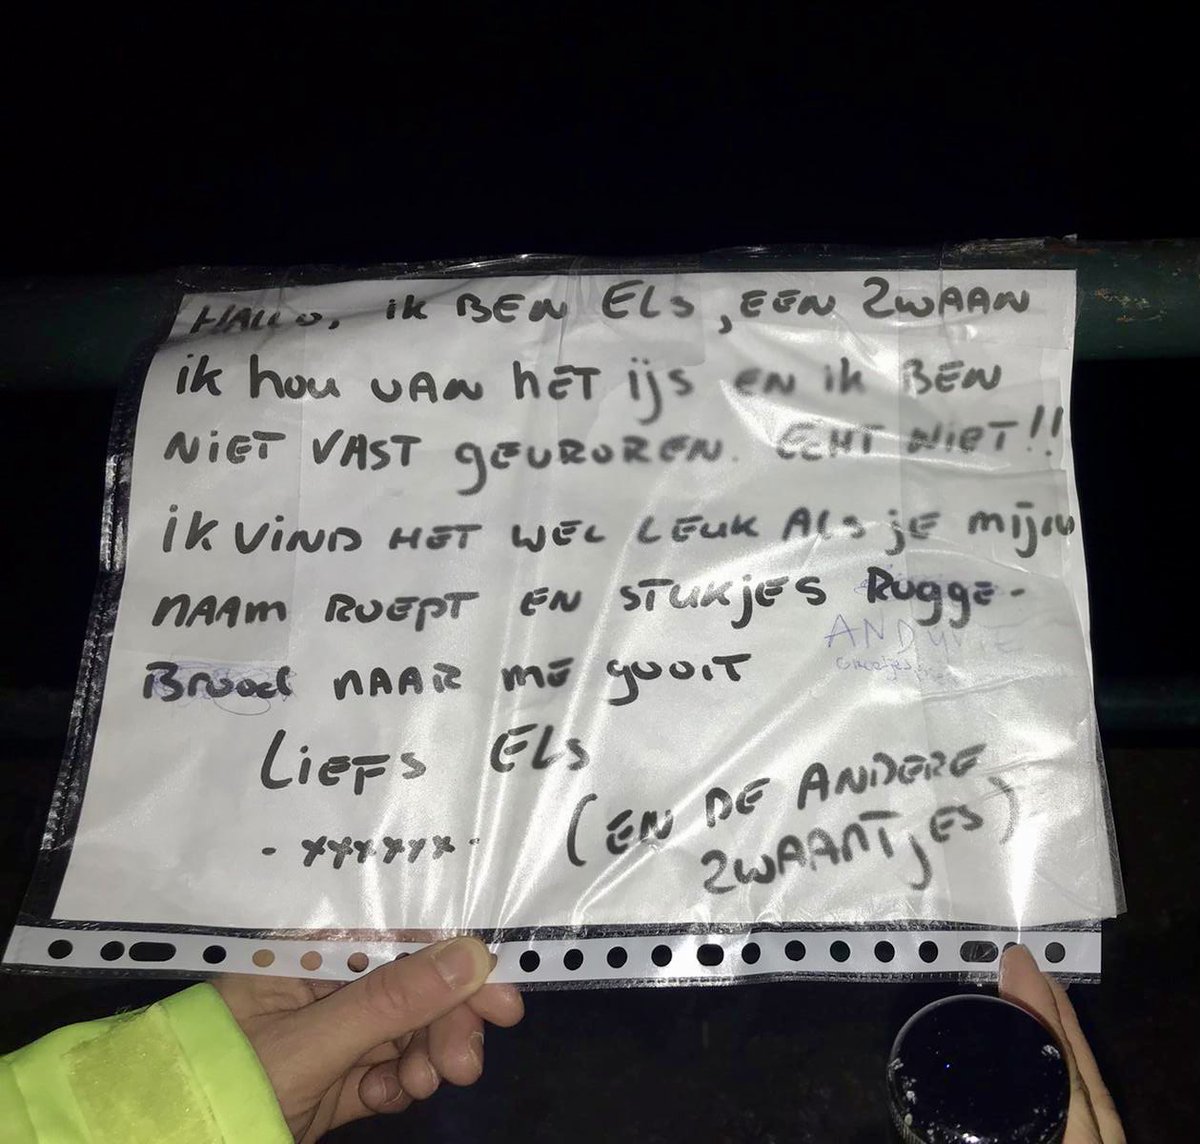 HALLO, ik BEN ELS, EEN ZWAAN
ik hou VAN hET ijs EN ik BEN
NiET VAST gEVROREN. ECHT NiET!!
iK ViND HET WEL LEUK ALS jE mijN
NAAM ROEPT EN STUKjES Rogge-
Brood NAAR mE gOOiT
ANDIJVIE
LiEFS ELS
(EN DE ANDERE
ZWAANTjES)
- xxxxxx -